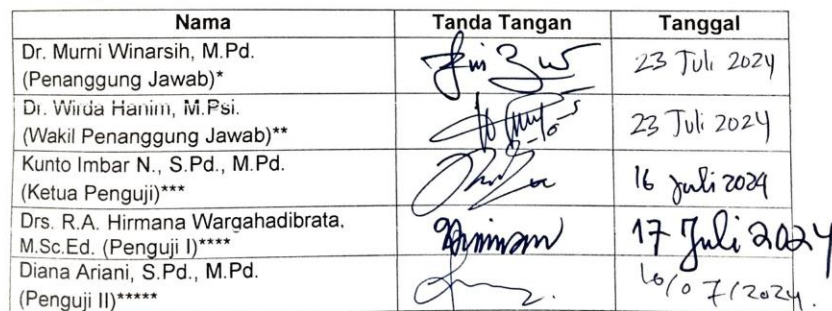 Nama Tanda Tangan Tanggal
Dr. Murni Winarsih, M.Pd.
(Penanggung Jawab)* 23 Juli 2024
Dr. Wirda Hanim, M.Psi.
(Wakil Penanggung Jawab)** 23 Juli 2024
Kunto Imbar N., S.Pd., M.Pd.
(Ketua Penguji)*** 16 Juli 2024
Drs. R.A. Hirmana Wargahadibrata,
M.Sc.Ed. (Penguji I)**** 17 Juli 2024
Diana Ariani, S.Pd., M.Pd.
(Penguji II)***** 16/07/2024.